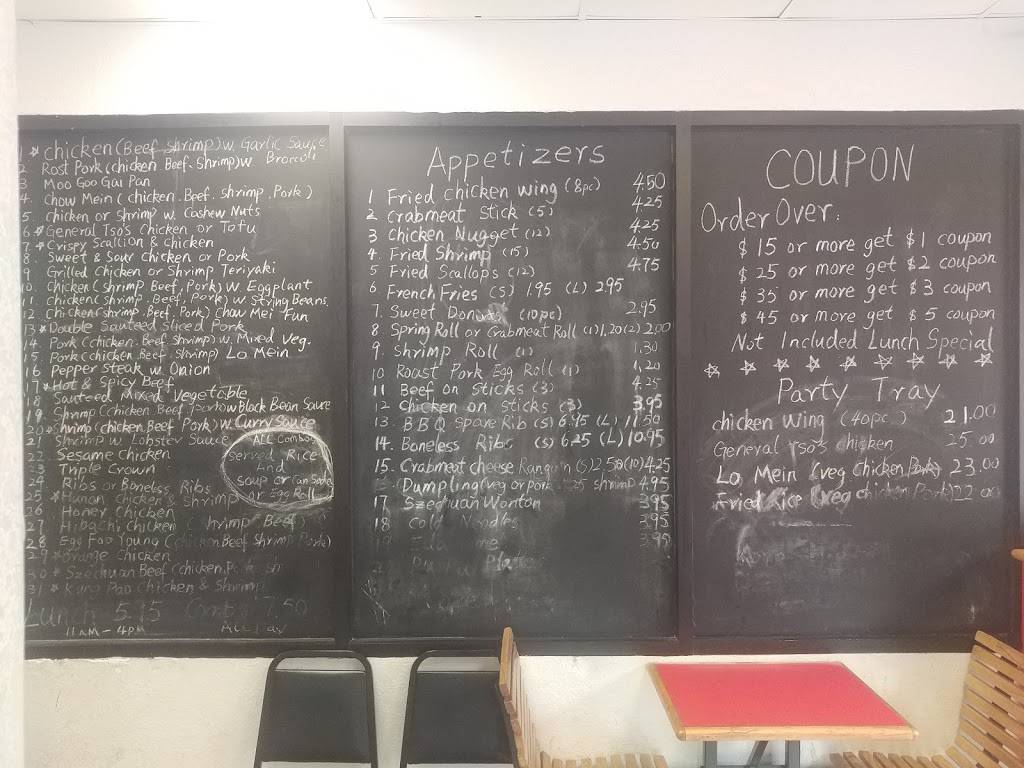 1 * chicken (Beef. shrimp) w Garlic Sauce
2 Rost Pork (chicken Beef. Shrimp) w Broccoli
3 Moo Goo Gai Pan
4. Chow Mein (chicken. Beef. shrimp. Pork)
5. chicken or shrimp w. Cashew Nuts
6 * General Tso's chicken or Tofu
7. * Crispy Scallion & chicken
8. Sweet & Sour chicken or Pork
9 Grilled chicken or Shrimp Teriyaki
10. Chicken (shrimp. Beef, Pork) w Eggplant
11 Chicken (shrimp. Beef, Pork) w String Beans.
12 Chicken (shrimp. Beef. Pork) Chow Mei Fun
13 * Double Sauteed Sliced Pork
14 Pork (Chicken. Beef. Shrimp) w. Mixed Veg.
15 Pork (chicken Beef. shrimp) Lo Mein
16 Pepper steak w Onion
17 * Hot & Spicy Beef
18 Sauteed Mixed Vegetable
19 Shrimp (Chicken Beef Pork) w Black Bean Sauce
20 * Shrimp (chicken Beef Pork) w Curry Sauce
21 Shrimp w. Lobster Sauce
22 Sesame chicken
23 Triple Crown
24 Ribs or Boneless Ribs
25 * Hunan chicken & shrimp
26 Honey Chicken
27 Hibachi Chicken (Shrimp Beef)
28 Egg Foo Young (chicken Beef Shrimp Pork)
29 * Orange chicken
30 * Szechuan Beef (chicken, Pork sh
31 * Kung Pao Chicken & Shrimp
ALL Combo
Served Rice
And
soup or can Soda
or Egg Roll
Lunch 5.15 Combo 7.50
11 AM - 4 PM All Day
Appetizers
1 Fried chicken wing (8pc) 4.50
2 Crabmeat Stick (5) 4.25
3 Chicken Nugget (12) 4.25
4. Fried Shrimp (15) 4.50
5 Fried Scallops (12) 4.75
6 French Fries (S) 1.95 (L) 2.95
7. Sweet Donuts (10pc) 2.95
8 Spring Roll or Crabmeat Roll (1) 1,20 (2) 2.00
9. Shrimp Roll (1) 1.30
10 Roast Pork Egg Roll (1) 1,20
11 Beef on Sticks (3) 4.25
12 Chicken on Sticks (3) 3.95
13. B.B.Q Spare Rib (S) 6.75 (L) 11.50
14. Boneless Ribs (S) 6.25 (L) 10.95
15. Crabmeat cheese Rangoon (5) 2,50 (10) 4.25
Dumpling (veg or pork shrimp) 4.95
17 Szechuan Wonton 3.95
18 Cold Noodles 3.95
19 3.95
COUPON
Order Over:
$15 or more get $1 coupon
$25 or more get $2 coupon
$35 or more get $3 coupon
$45 or more get $5 coupon
Not Included Lunch Special
Party Tray
chicken wing (40pc) 21.00
General Tso's chicken 25.00
Lo Mein (veg chicken Pork) 23.00
Fried Rice (veg chicken Pork) 22.00